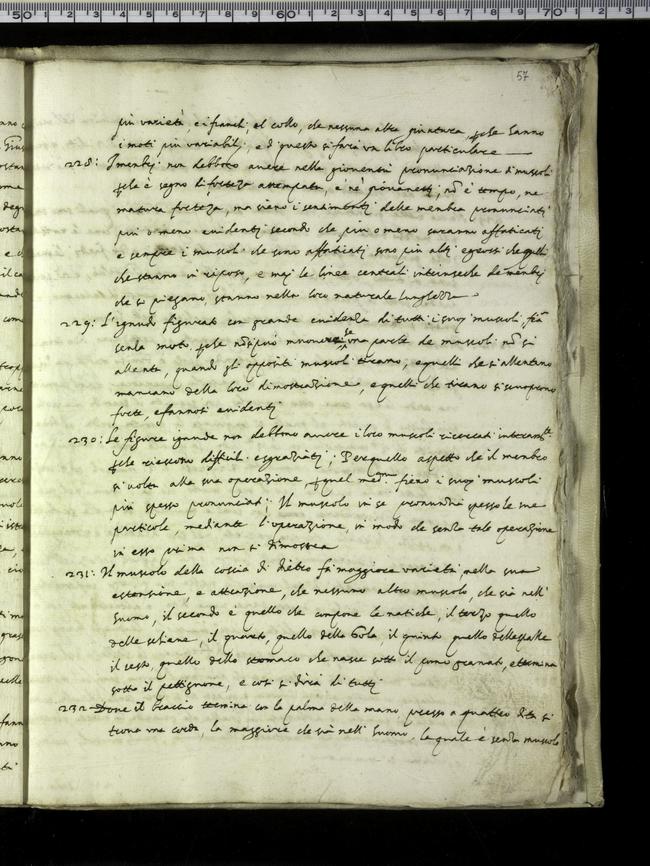 57
più varietà, e i fianchi, el collo, che nessuna altra giuntura, perche hanno
i moti più variabili, e di questo si farà un libro particulare
228: I membri non debbono avere nella gioventù pronunciazione di muscoli
perche è segno di fortezza attempata, e ne giovanetti, non è tempo, ne
matura fortezza, ma sieno i sentimenti delle membra pronunciati
più o meno evidenti secondo che più o meno saranno affaticati
e sempre i muscoli che sono affaticati sono più alti e grossi che quelli
che stanno in riposo, e mai le linee centrali intrinseche de membri
che si piegano, stanno nella loro naturale lunghezza
229: L'ignudo figurato con grande evidenza di tutti i suoi muscoli, fia
senza moto, perche non si può muovere se una parte de muscoli non si
allenta, quando gli oppositi muscoli tirano, e quelli che si allentano
mancano della loro dimostrazione, e quelli che tirano si scuoprono
forte, e fannosi evidenti
230: Le figure ignude non debbono avere i loro muscoli ricercati interamte
perche riescono difficili e sgraziati; Per quello aspetto che il membro
si volta alla sua operazione, per quel medmo fieno i suoi muscoli
più spesso pronunciati; Il muscolo in se pronuntia spesso le sue
particole, mediante l'operazione, in modo che senza tale operazione
in esso prima non si dimostra
231: Il muscolo della coscia di dietro fa maggiore varietà, nella sua
estensione, e attrazione, che nessuno altro muscolo, che sia nell'
huomo, il secondo è quello che compone le natiche, il terzo quello
delle schiene, il quarto, quello della Gola, il quinto quello delle spalle
il sesto, quello dello stomaco che nasce sotto il pomo granato, e termina
sotto il pettignone, e così si dirà di tutti
232 Dove il braccio termina con la palma della mano presso a quattro dita si
trova una corda, la maggiore che sia nell'huomo, la quale è senza muscolo